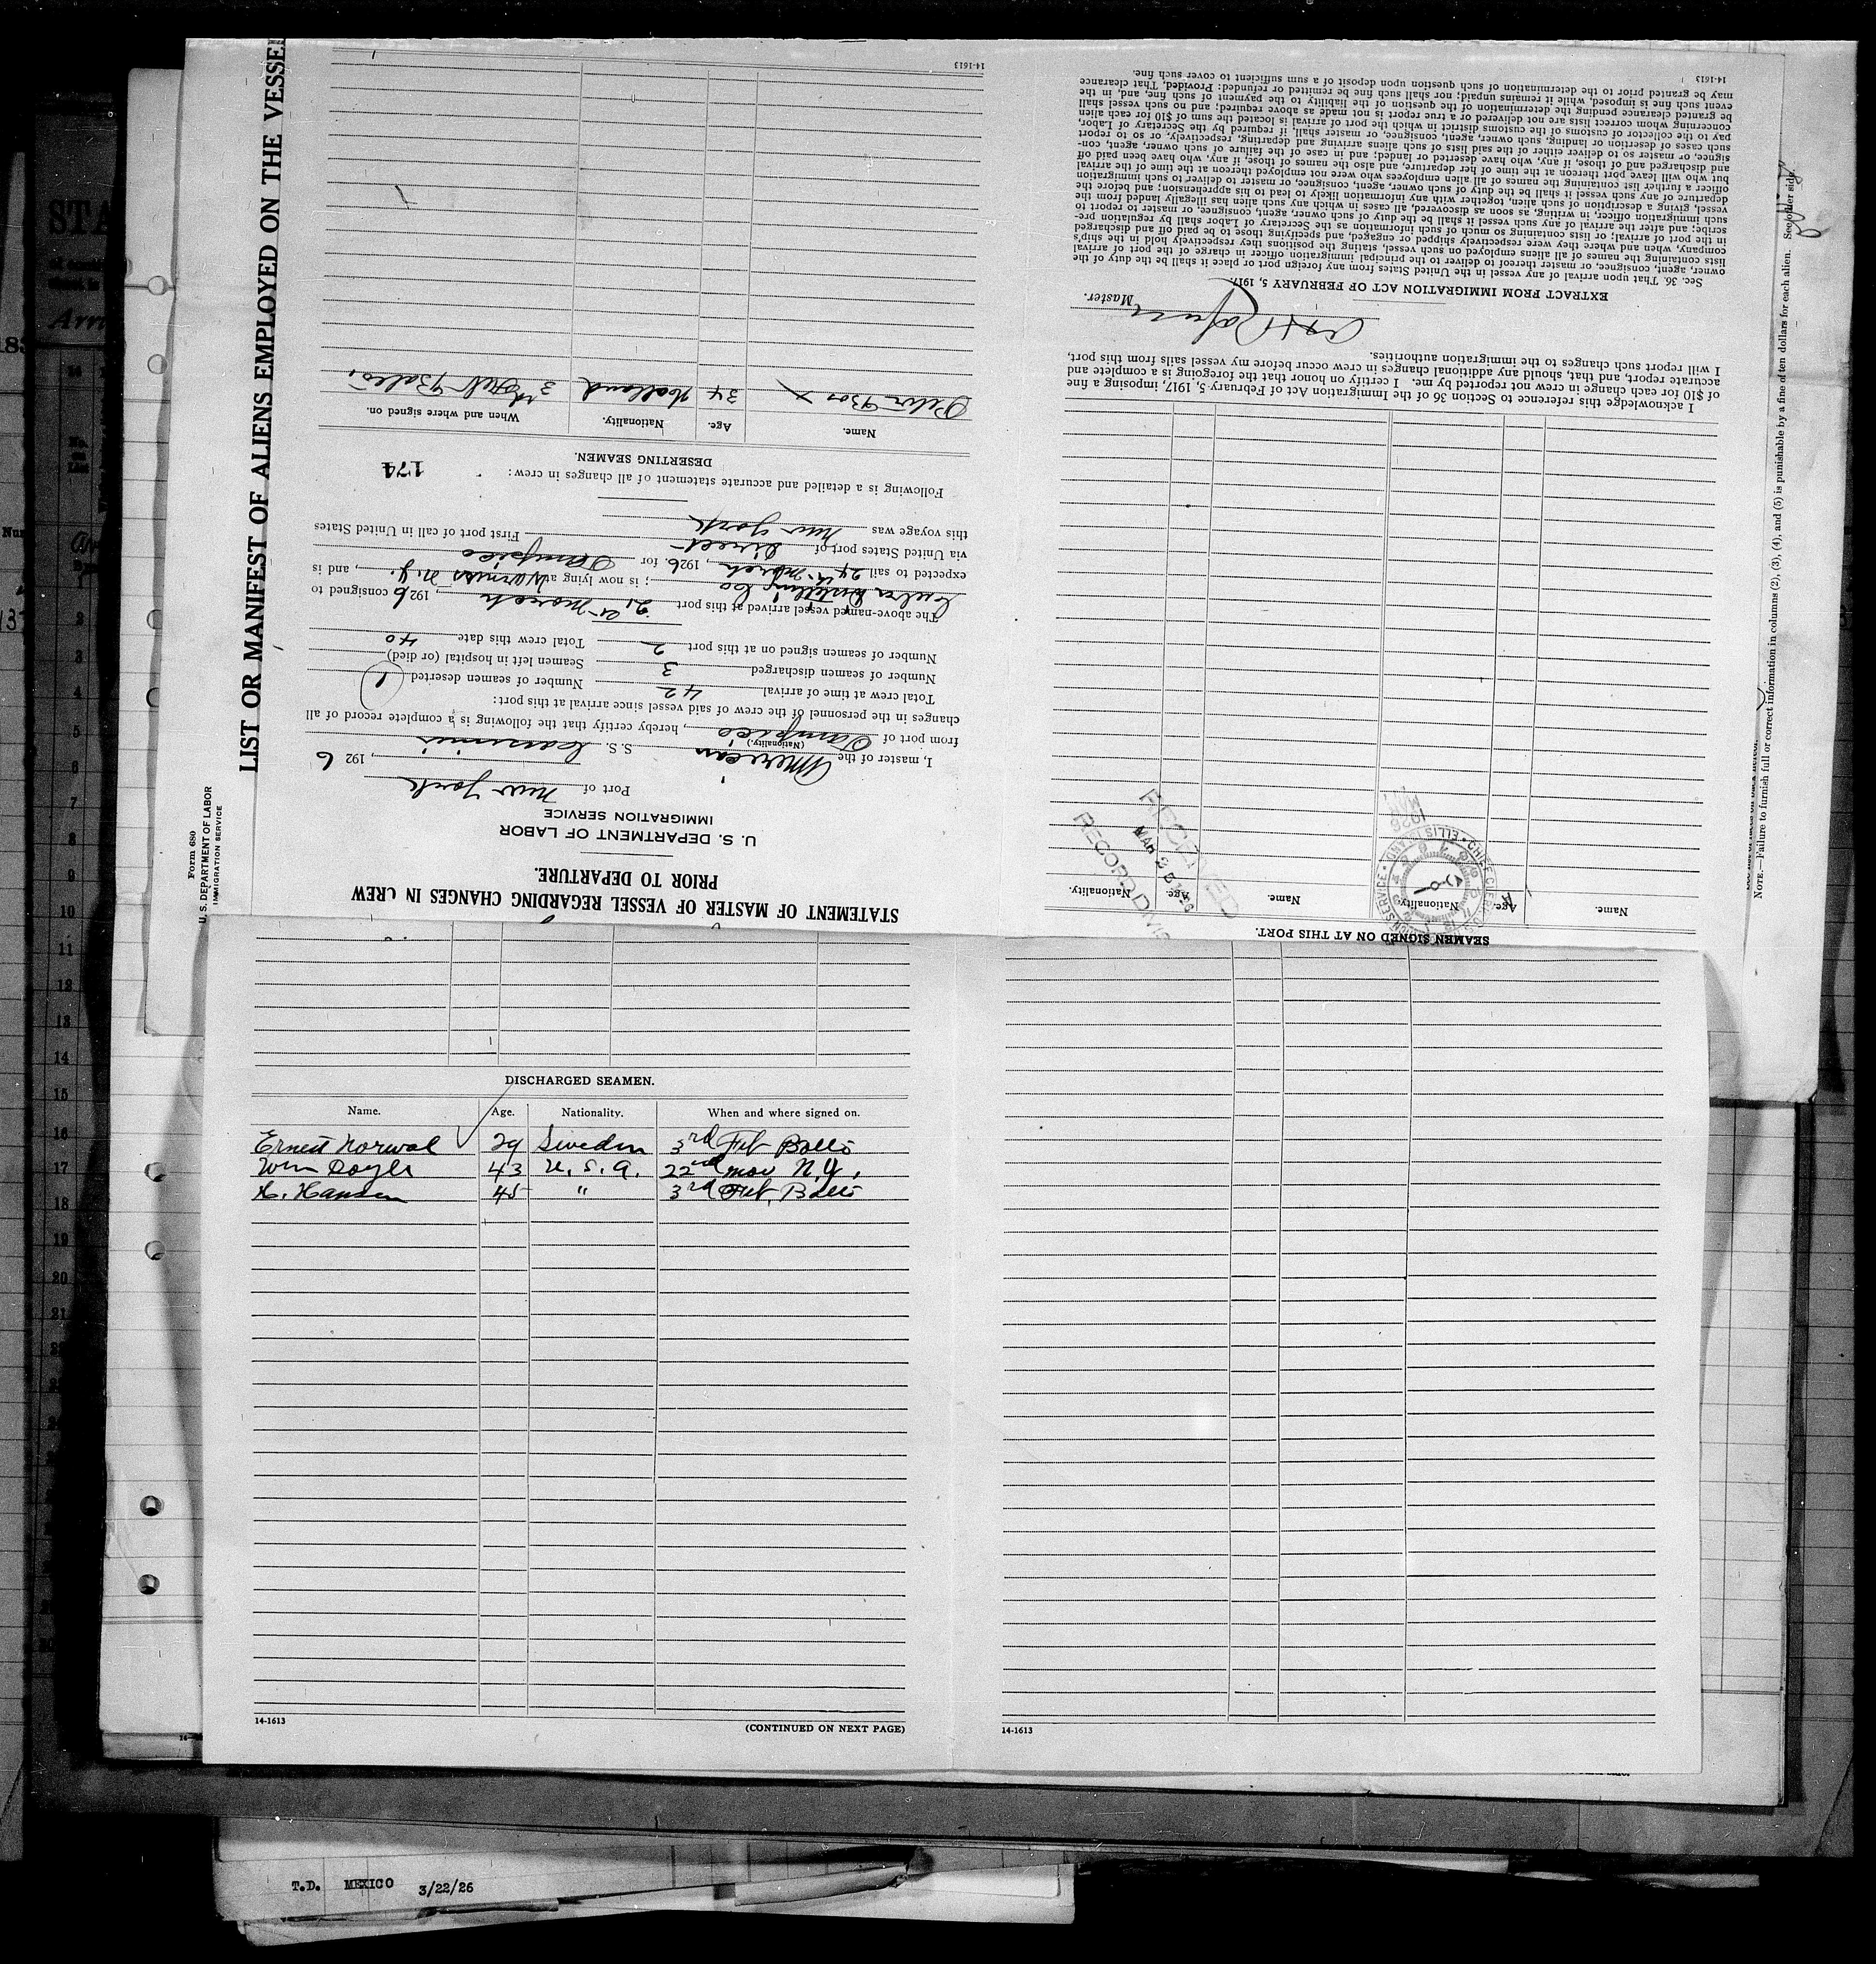 LIST OR MANIFEST OF ALIENS EMPLOYED ON THE VESSEL
Form 680
U. S. DEPARTMENT OF LABOR
IMMIGRATION SERVICE
STATEMENT OF MASTER OF VESSEL REGARDING CHANGES IN CREW
PRIOR TO DEPARTURE.
U. S. DEPARTMENT OF LABOR
IMMIGRATION SERVICE
Port of New York, 1926
I, master of the American S.S.
(Nationality.)
from port of Tampico, hereby certify that the following is a complete record of all
changes in the personnel of the crew of said vessel since arrival at this port:
Total crew at time of arrival 42 Number of seamen deserted 1
Number of seamen discharged 3 Seamen left in hospital (or died)
Number of seamen signed on at this port 2 Total crew this date 40
The above-named vessel arrived at this port 21st March, 1926, consigned to
; is now lying at N.J., and is
expected to sail 24th March, 1926 for Tampico
via United States port of Direct First port of call in United States
this voyage was New York
Following is a detailed and accurate statement of all changes in crew: 174
DESERTING SEAMEN.
Name. Age. Nationality. When and where signed on.
Peter Bos x 34 Holland 3rd Feb Balto.
14-1613
SEAMEN SIGNED ON AT THIS PORT.
Name. Age. Nationality. Name. Age. Nationality.
RECEIVED
MAR 25 1926
RECORD DIV
I acknowledge this reference to Section 36 of the Immigration Act of February 5, 1917, imposing a fine
of $10 for each change in crew not reported by me. I certify on honor that the foregoing is a complete and
accurate report, and that, should any additional changes in crew occur before my vessel sails from this port,
I will report such changes to the immigration authorities.
Master.
EXTRACT FROM IMMIGRATION ACT OF FEBRUARY 5, 1917.
Sec. 36. That upon arrival of any vessel in the United States from any foreign port or place it shall be the duty of the
owner, agent, consignee, or master thereof to deliver to the principal immigration officer in charge of the port of arrival
lists containing the names of all aliens employed on such vessel, stating the positions they respectively hold in the ship's
company, when and where they were respectively shipped or engaged, and specifying those to be paid off and discharged
in the port of arrival; or lists containing so much of such information as the Secretary of Labor shall by regulation pre-
scribe; and after the arrival of any such vessel it shall be the duty of such owner, agent, consignee, or master to report to
such immigration officer, in writing, as soon as discovered, all cases in which any such alien has illegally landed from the
vessel, giving a description of such alien, together with any information likely to lead to his apprehension; and before the
departure of any such vessel it shall be the duty of such owner, agent, consignee, or master to deliver to such immigration
officer a further list containing the names of all alien employees who were not employed thereon at the time of the arrival
but who will leave port thereon at the time of her departure, and also the names of those, if any, who have been paid off
and discharged and of those, if any, who have deserted or landed; and in case of the failure of such owner, agent, con-
signee, or master so to deliver either of the said lists of such aliens arriving and departing, respectively, or so to report
such cases of desertion or landing, such owner, agent, consignee, or master shall, if required by the Secretary of Labor,
pay to the collector of customs of the customs district in which the port of arrival is located the sum of $10 for each alien
concerning whom correct lists are not delivered or a true report is not made as above required; and no such vessel shall
be granted clearance pending the determination of the question of the liability to the payment of such fine, and, in the
event such fine is imposed, while it remains unpaid; nor shall such fine be remitted or refunded: Provided, That clearance
may be granted prior to the determination of such question upon deposit of a sum sufficient to cover such fine.
14-1613
NOTE.—Failure to furnish full or correct information in columns (2), (3), (4), and (5) is punishable by a fine of ten dollars for each alien. See other side.
DISCHARGED SEAMEN.
Name. Age. Nationality. When and where signed on.
Ernest Norwal 29 Sweden 3rd Feb Balto
Wm Doyle 43 U.S.A. 22nd Nov N.Y.
H. Hansen 45 " 3rd Feb. Balto
14-1613
(CONTINUED ON NEXT PAGE)
14-1613
T.D. MEXICO 3/22/26